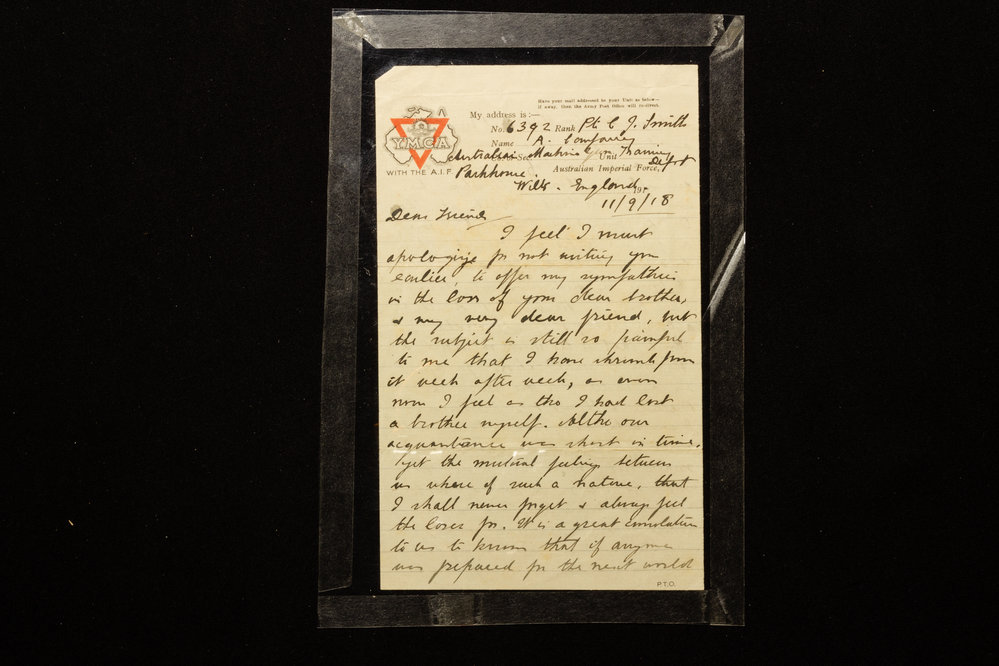 Have your mail addressed to your Unit as below—
if away, then the Army Post Office will re-direct.
My address is :—
No. 6392 Rank Pt. C J. Smith
Name A. Company
Australian Machine Gun Training
Sec. Unit Depot
YMCA
WITH THE A.I.F.
Parkhouse. Australian Imperial Force,
Wilts. England 191
11/9/18
Dear Friend
I feel I must
apologize for not writing you
earlier, to offer my sympathies
in the loss of your dear brother,
& my very dear friend, but
the subject is still so painful
to me that I have shrunk from
it week after week, as even
now I feel as tho I had lost
a brother myself. Altho our
acquantance was short in time,
yet the mutual feelings between
us where of such a nature, that
I shall never forget & always feel
the loses for. It is a great consolation
to us to know that if anyone
was prepared for the next world
P.T.O.